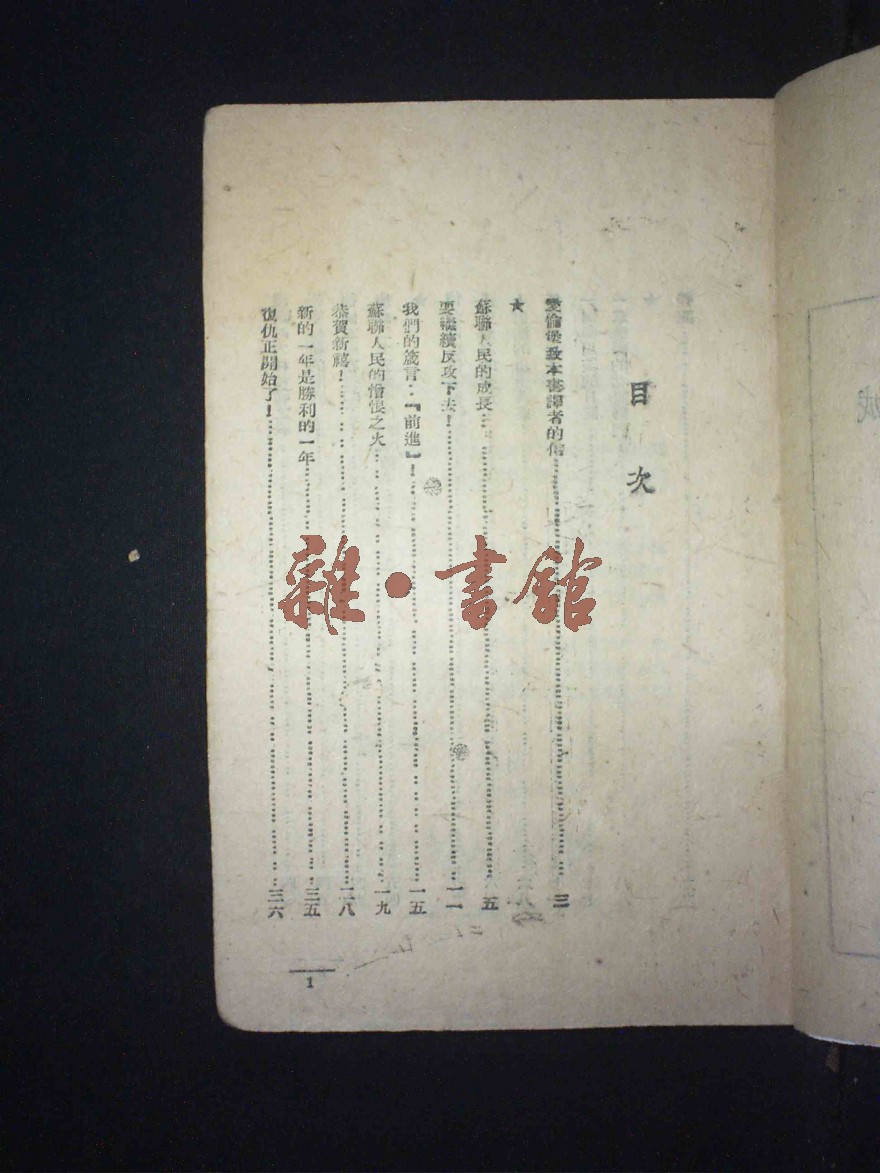 目次
愛倫堡致本書譯者的信……三
★
蘇聯人民的成長……五
要繼續反攻下去!……一一
我們的箴言:『前進』!……一五
蘇聯人民的憎恨之火……一九
恭賀新禧!……二八
新的一年是勝利的一年……三五
復仇正開始了!……三六
1
雜·書館
城